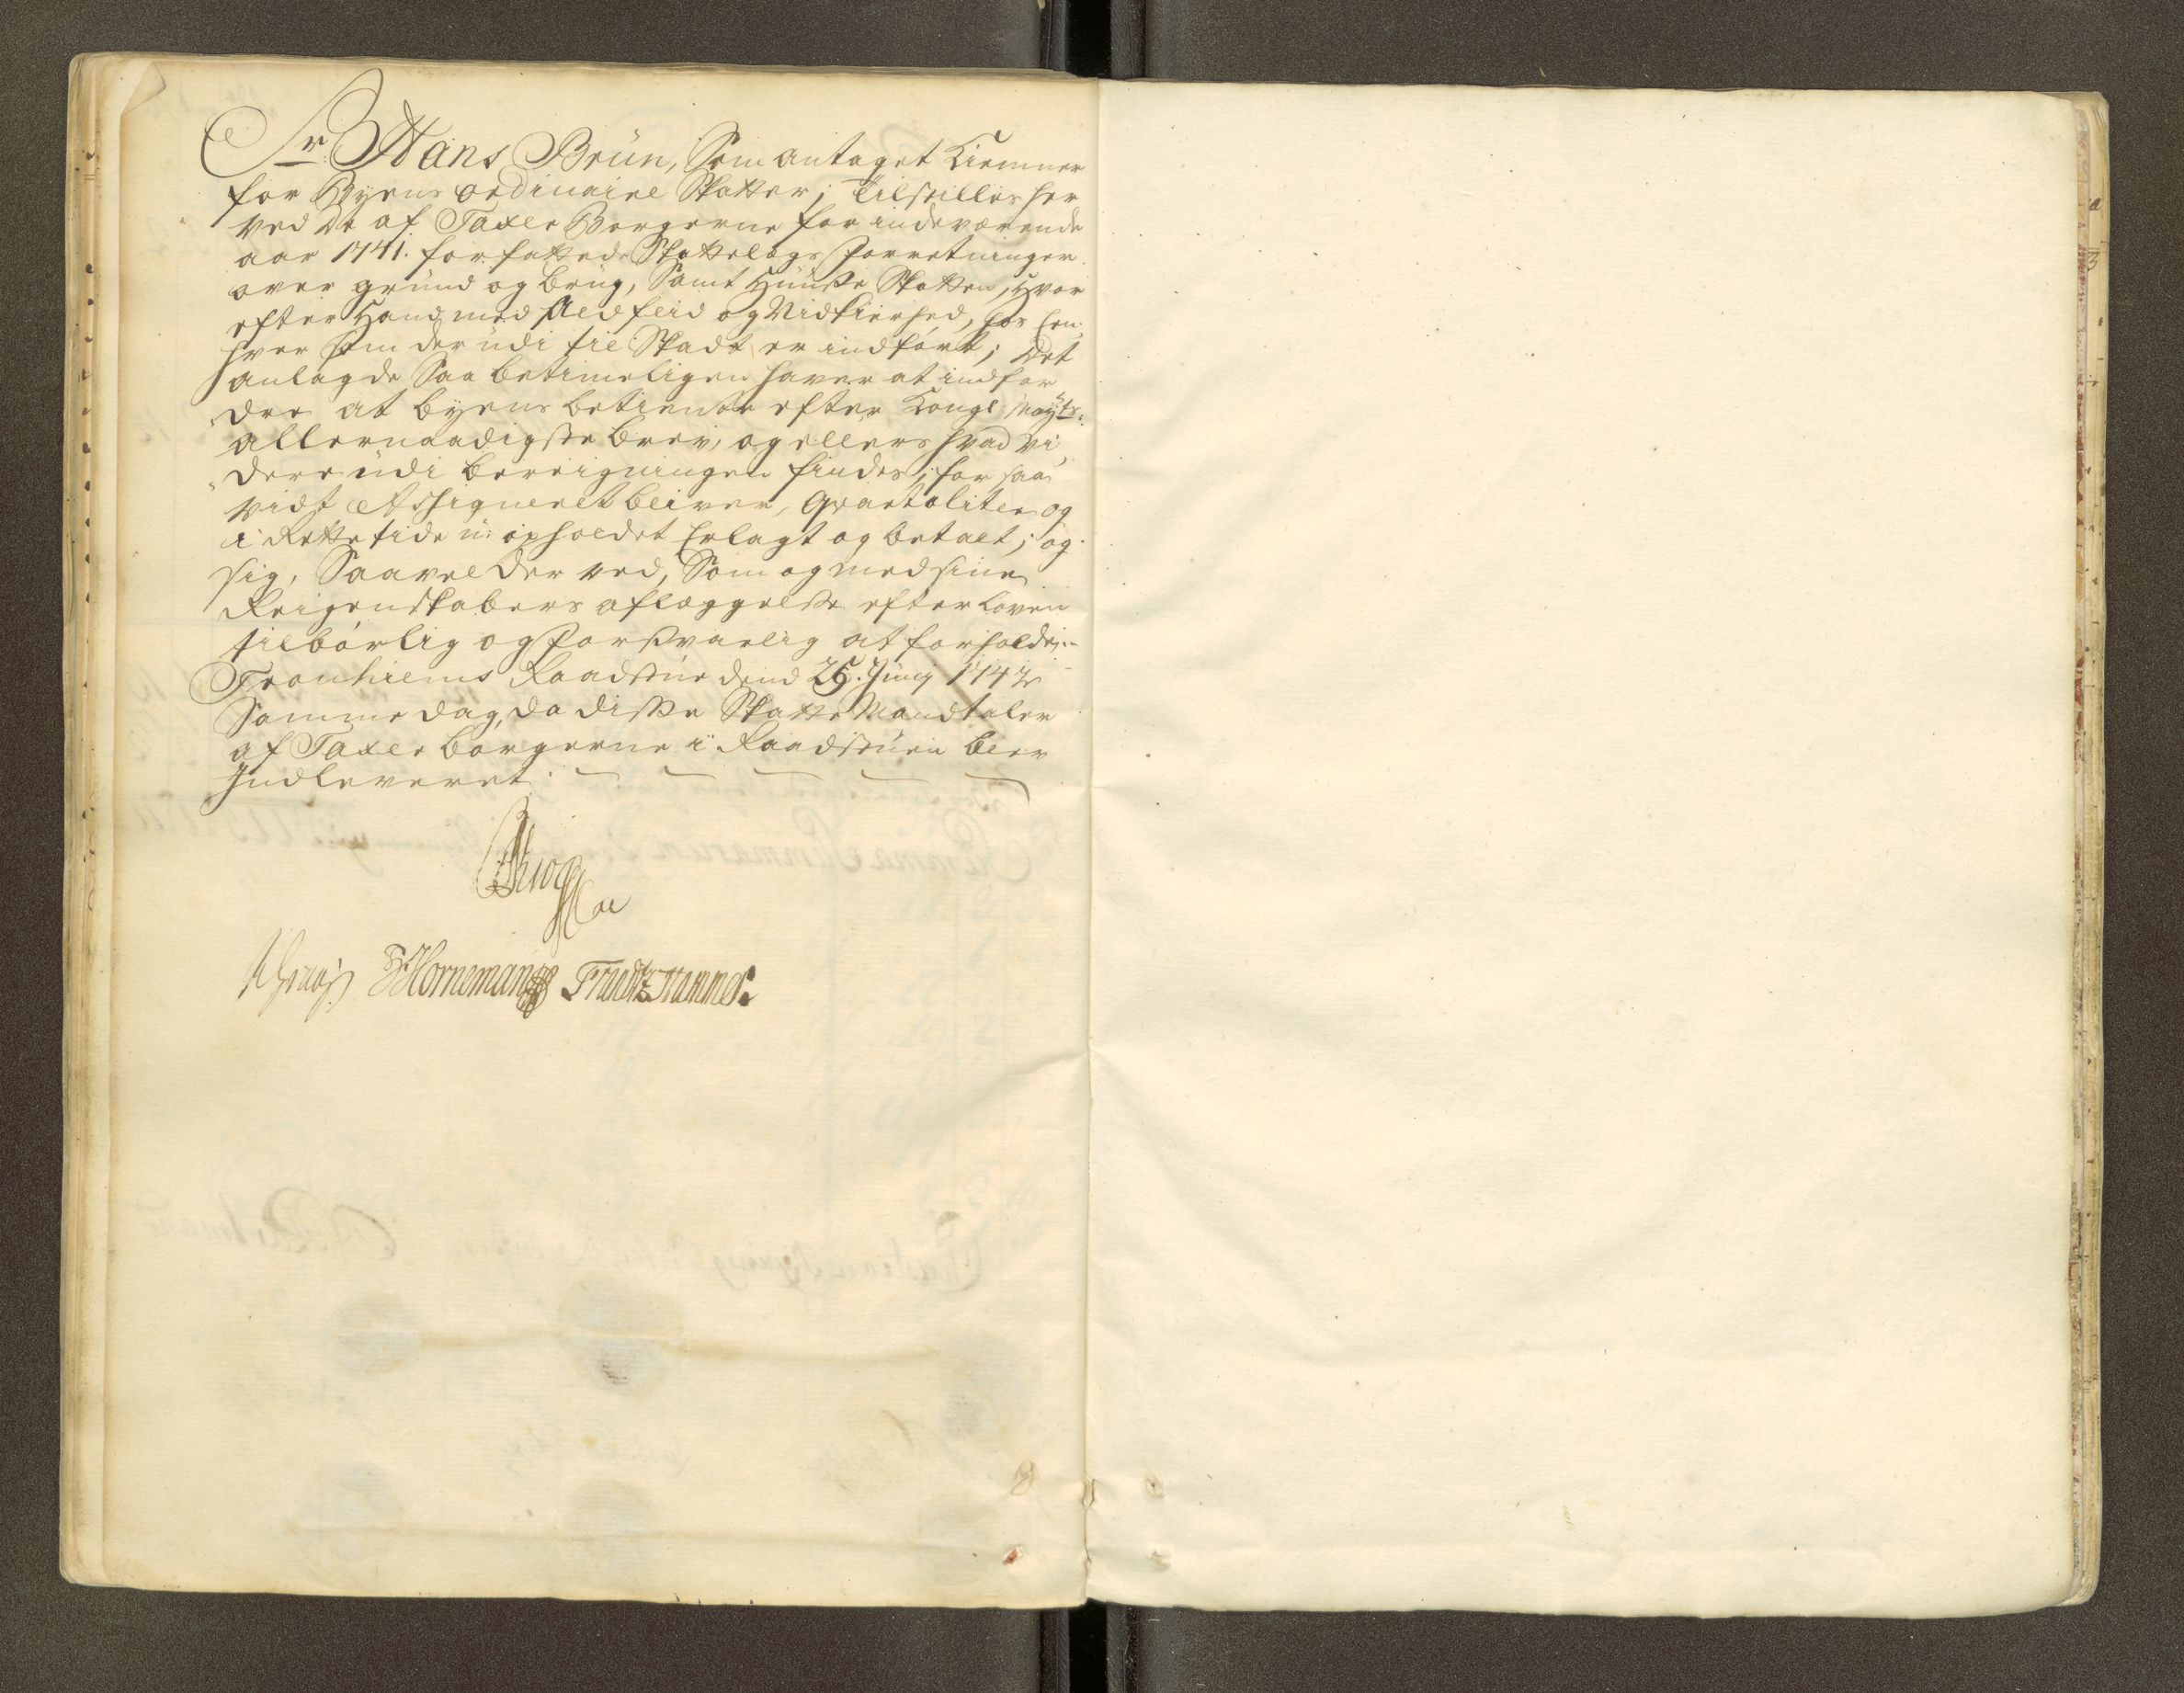 Sr. Hans Brün, Som antaget Kiemner
for Byens ordinaire Skatter; tilstilles her
ved de af Taxer Borgerne for indeværende
aar 1741. forfattede Skattelags Forretninger
over grund og brug, Samt Huuse Skatten, Hvor
efter Hand med fliid og Nidkierhed, hos Een
hver som der udi til Skadt er indført; Det
anlagde Saa betimeligen haver at indfor
dre at byens betiente efter Kongl Mayts:
allernaadigste brev, og ellers hvad vi
dere udi bereigningen findes, for saa
vidt Assigneret bliver, Qvartaliter og
i Rette tide u-opholdet Erlagt og betalt; og
sig, Saavel der ved, Som og med sine
Reigenskabers aflæggelse efter Loven
tilbørlig og Forsvarlig at forholde.
Tronhiems Raadstue dend 25. Junij 1742
Samme dag, da disse Skatte Mandtaler
af Taxer borgerne i Raadstuen blev
Indleveret.
Hornemann Frantz Hammer.